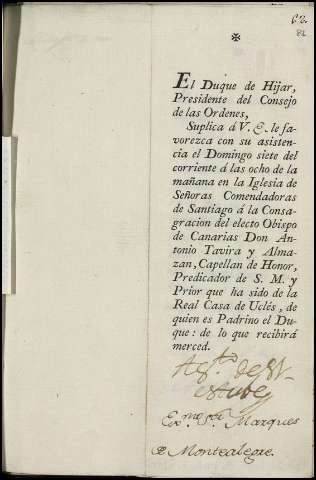 62.
✠
El Duque de Hijar,
Presidente del Consejo
de las Ordenes,
Suplica á V. E. le fa-
vorezca con su asisten-
cia el Domingo siete del
corriente á las ocho de la
mañana en la Iglesia de
Señoras Comendadoras
de Santiago á la Consa-
gracion del electo Obispo
de Canarias Don An-
tonio Tavira y Alma-
zan, Capellan de Honor,
Predicador de S. M. y
Prior que ha sido de la
Real Casa de Uclés, de
quien es Padrino el Du-
que: de lo que recibirá
merced.
Exmo. Sor. Marques
de Montealegre.